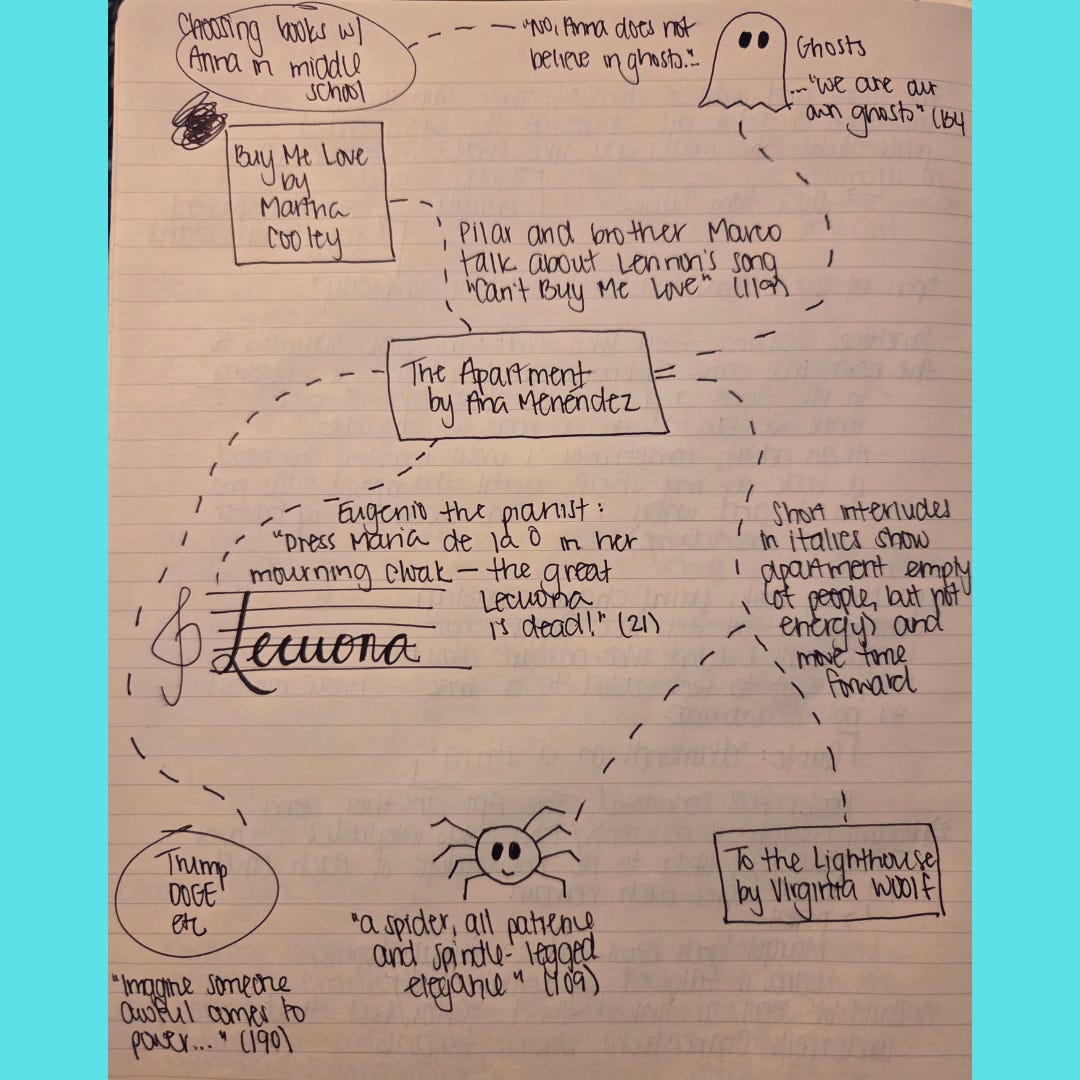 Choosing books w/
Anna in middle
school
"No, Anna does not
believe in ghosts..."
Ghosts
..."we are our
own ghosts" (134
Buy Me Love
by
Martha
Cooley
Pilar and brother Marco
talk about Lennon's song
"Can't Buy Me Love" (119)
The Apartment
by Ana Menéndez
Eugenio the pianist:
"Dress Maria de la O in her
mourning cloak — the great
Lecuona
is dead!" (21)
Lecuona
Short interludes
in italics show
apartment empty
(of people, but not
energy) and
move time
forward
Trump
DOGE
etc
"Imagine someone
awful comes to
power..." (190)
"a spider, all patience
and spindle-legged
elegance" (109)
To the Lighthouse
by Virginia Woolf